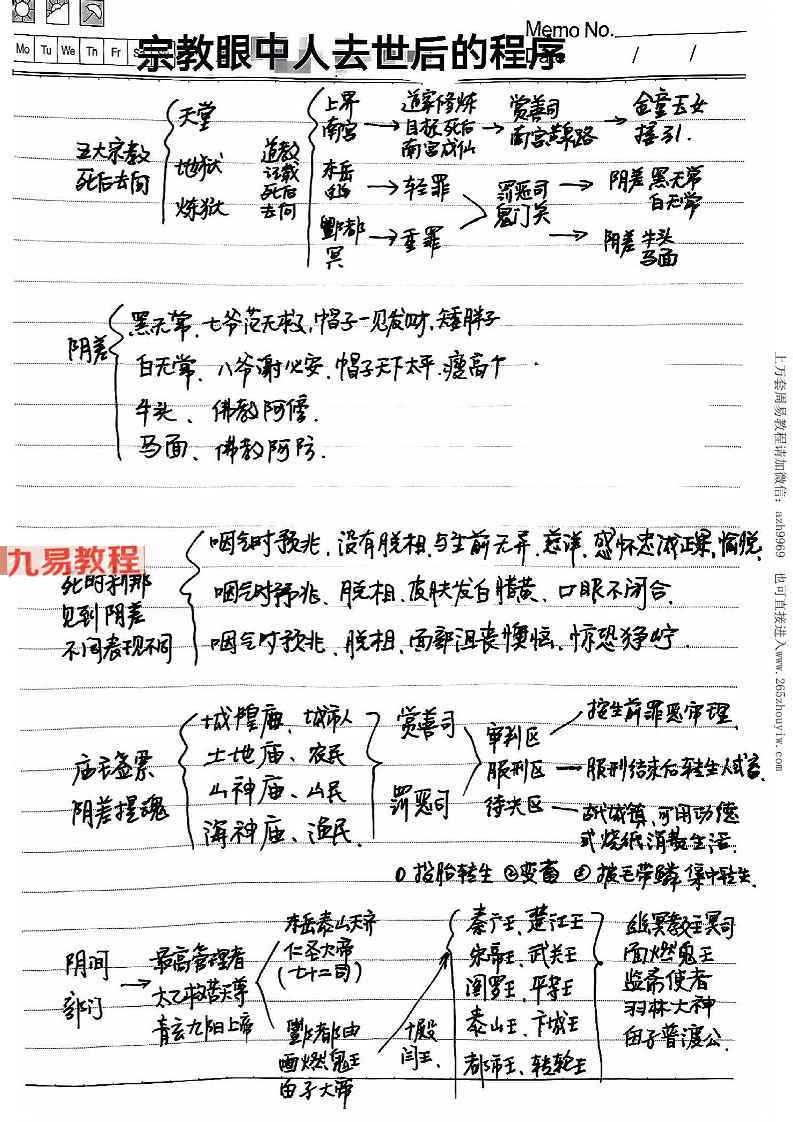 Memo No.
Mo Tu We Th Fr Sa
Date / /
宗教眼中人去世后的程序
五大宗教
死后去向
天堂
地狱
炼狱
道教
记载
死后
去向
上界
南宫
道家修炼
目标死后
南宫成仙
赏善司
南宫黄路
金童玉女
接引.
东岳
轻罪
酆都
冥
重罪
罚恶司
鬼门关
阴差 黑无常
白无常
阴差 牛头
马面
阴差
黑无常、七爷范无救,帽子一见发财,矮胖子
白无常、八爷谢必安、帽子天下太平.瘦高个
牛头、佛教阿傍.
马面、佛教阿防.
九易教程
死时刹那
见到阴差
不同表现不同
咽气时预兆,没有脱相,与生前无异,慈洋,感怀忠淑正果,愉脱,
咽气时预兆、脱相、皮肤发白腊黄、口眼不闭合.
咽气时预兆、脱相、面部沮丧懊恼,惊恐狰狞.
庙王盖票
阴差提魂
城隍庙、城市人
土地庙、农民
山神庙、山民
海神庙、渔民.
赏善司
罚恶司
审判区
服刑区
待决区
按生前罪恶审理.
服刑结束后转生人或畜.
城镇,可用功德
或烧纸消费生活.
①投胎转生 ②变畜 ③披毛带鳞集中转生.
阴间
部门
最高管理者
太乙救苦天尊
青玄九阳上帝
东岳泰山天齐
仁圣大帝
(七十二司)
酆都由
面燃鬼王
由子大帝
十殿
闫王.
秦广王、楚江王
宋帝王、武关王
阎罗王、平等王
泰山王、卞城王
都市王、转轮王
幽冥教主冥司
面燃鬼王
监斋使者
羽林大神
由子普渡公.
上万套周易教程请加微信:azh9969 也可直接进入www.265zhouyiw.com